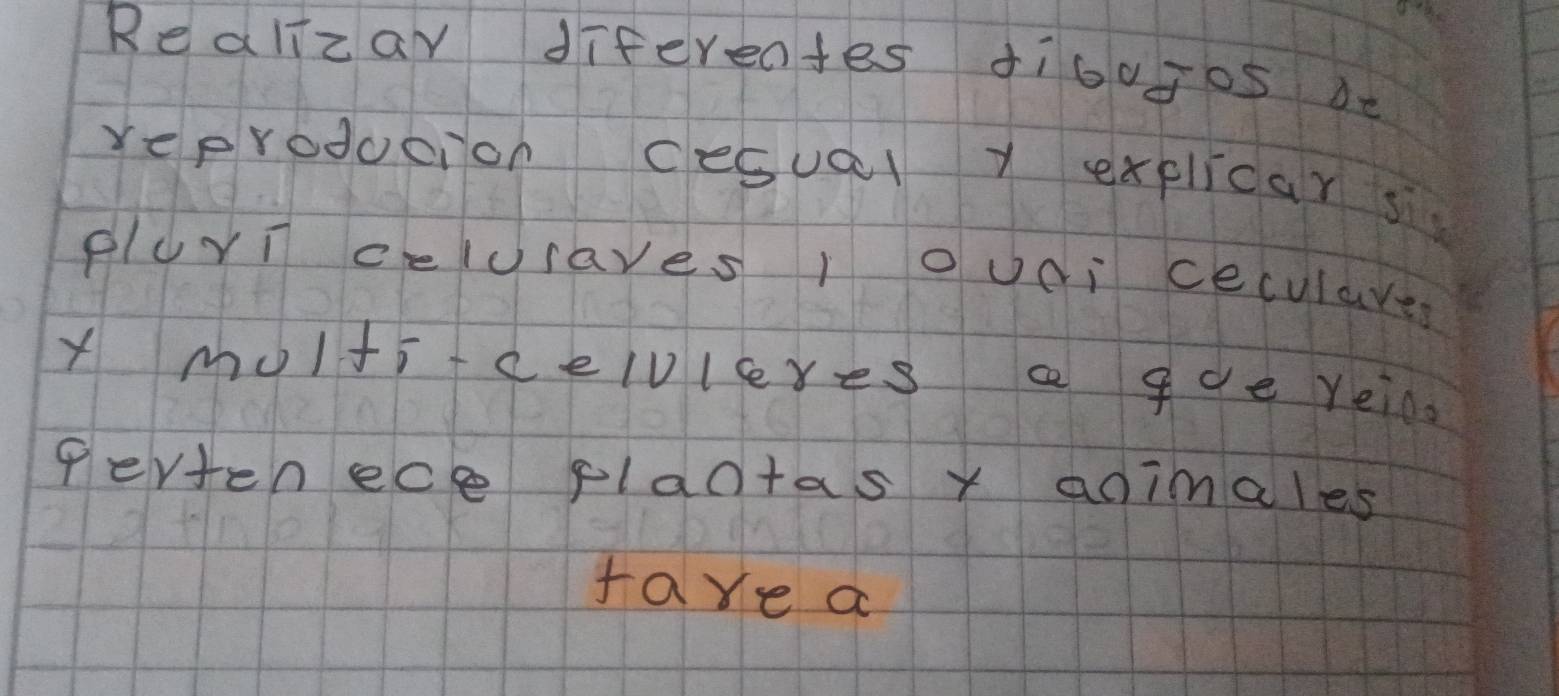 Realizar diferentes dibujos de
reproducion cesual y explicar
pluri celulares, o uni ceculares
y multi-celulares a que reino
pertenece plantas y animales
tarea